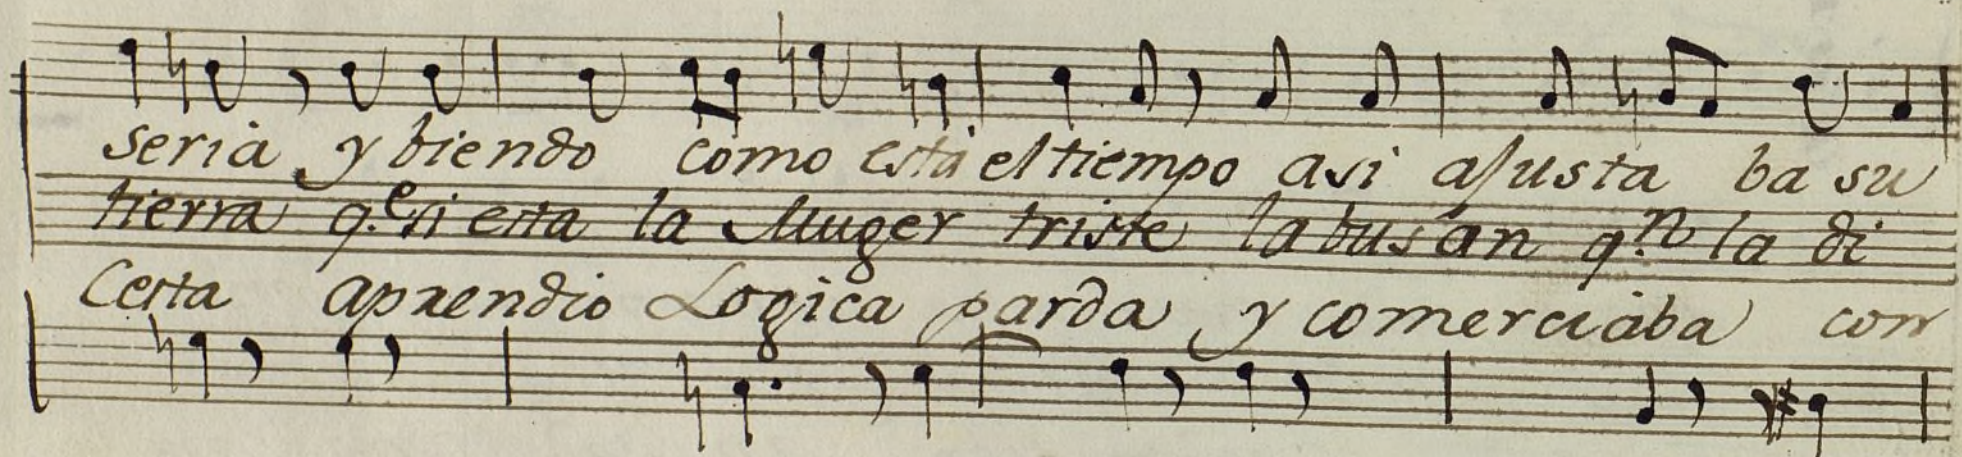 seria y biendo como está el tiempo asi ajusta ba su
tierra q.e si esta la Muger triste la busán q.n la di
Cesta aprendio Logica parda y comerciaba con